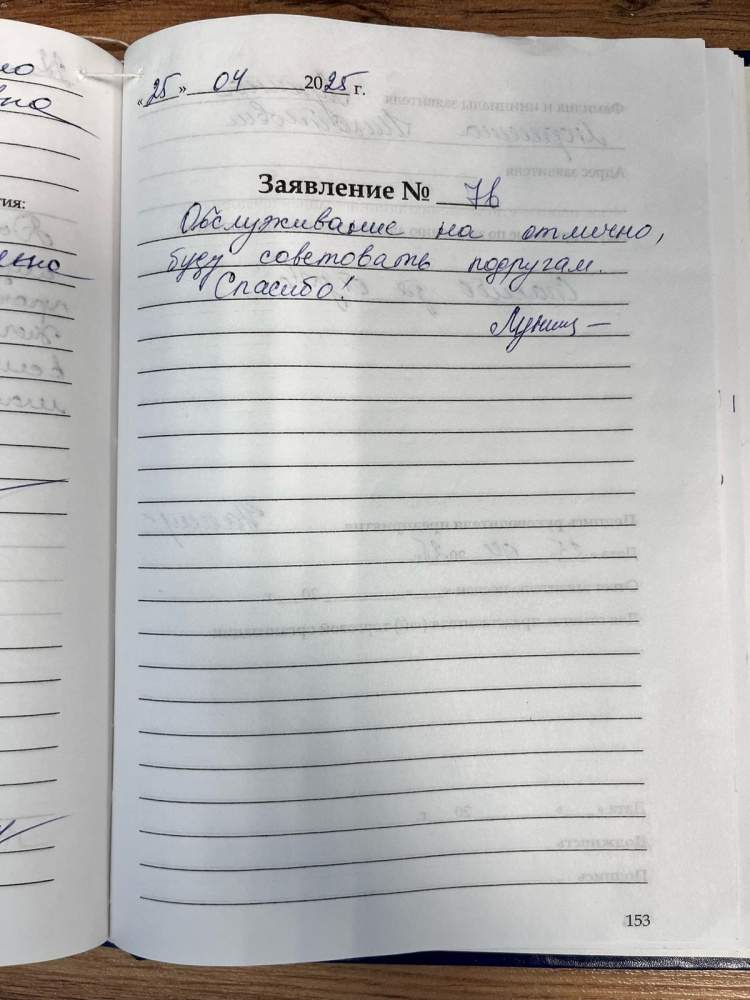 «25» 04 2025 г.
Заявление № 76
Обслуживание на отлично,
буду советовать подругам.
Спасибо!
153